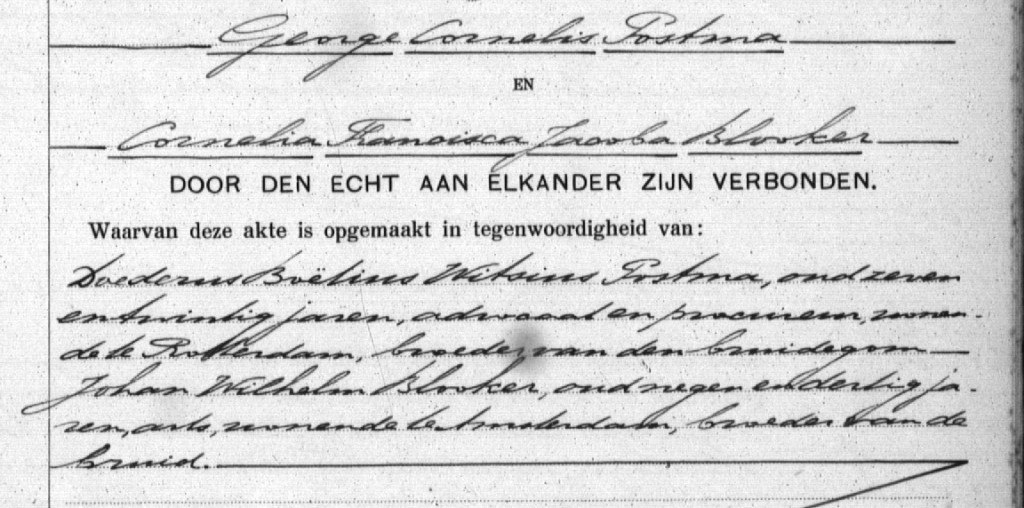 George Cornelis Postma
EN
Cornelia Francisca Jacoba Blooker
DOOR DEN ECHT AAN ELKANDER ZIJN VERBONDEN.
Waarvan deze akte is opgemaakt in tegenwoordigheid van:
Doederus Boëtius Witsius Postma, oud zeven
en twintig jaren, advocaat en procureur, wonen-
de te Rotterdam, broeder van den bruidegom
Johan Wilhelm Blooker, oud negen en dertig ja-
ren, arts, wonende te Amsterdam, broeder van de
bruid.